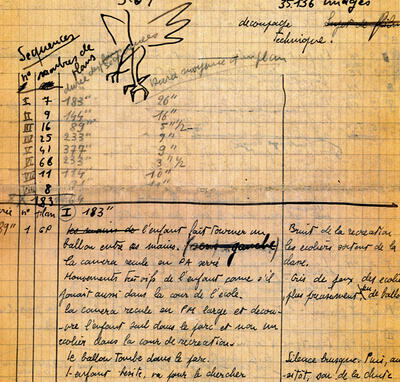 35.136 images
decoupage
Technique.
Sequences
n° nombre de plans
Durée moyenne d'un plan
I 7 183" 26"
II 9 144" 16"
III 16 89" 5" 1/2
IV 25 233" 9"
V 41 377" 9"
VI 66 233" 3" 1/2
VII 11 114 10"
VIII 8
183
n° plan I 183"
1 GP l'enfant fait tourner un
ballon entre ses mains.
la camera recule en PA serré
Mouvements très vifs de l'enfant comme s'il
jouait aussi dans la cour de l'école.
la camera recule en PM large et decou-
vre l'enfant seul dans le parc et non un
ecolier dans la cour de recreation.
le ballon tombe dans le parc.
l'enfant hésite, va pour le chercher
Bruit de la recreation
les ecoliers sortent de la
classe.
Cris de jeux des ecolie
plus precisement de ballo
Silence brusque. Puis, au
sitôt, son de la chute